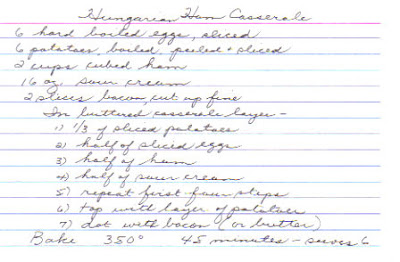 Hungarian Ham Casserole
6 hard boiled eggs, sliced
6 potatoes, boiled, peeled + sliced
2 cups cubed ham
16 oz sour cream
2 slices bacon, cut up fine
In buttered casserole layer -
1) 1/3 of sliced potatoes
2) half of sliced eggs
3) half of ham
4) half of sour cream
5) repeat first four steps
6) top with layer of potatoes
7) dot with bacon (or butter)
Bake 350° 45 minutes - serves 6